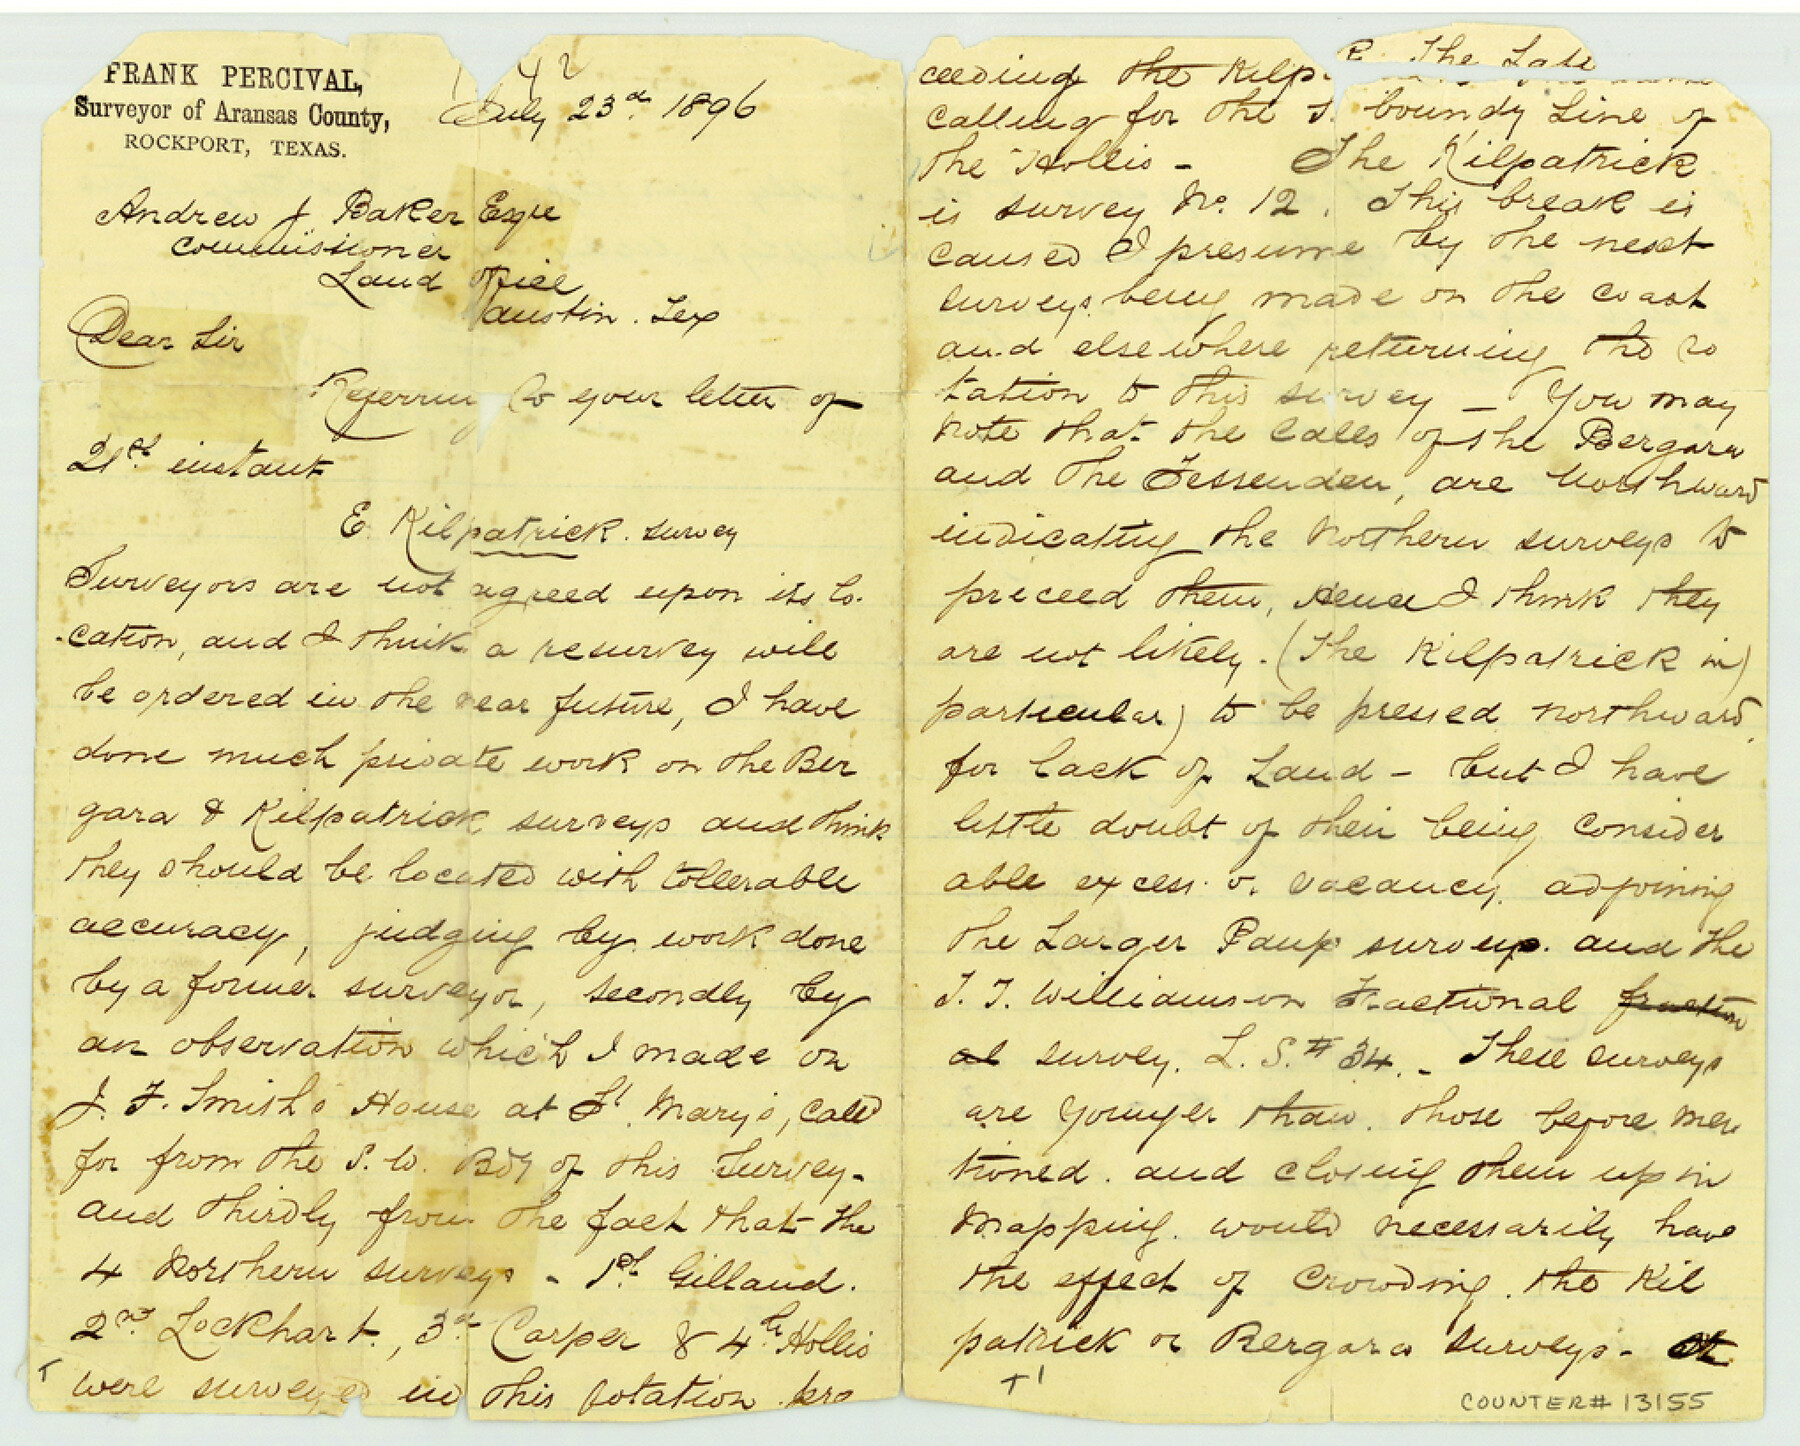 FRANK PERCIVAL,
Surveyor of Aransas County,
ROCKPORT, TEXAS.
July 23d 1896
Andrew J Baker Esqe
Commissioner
Land office
Austin. Tex
Dear Sir
Referring to your letter of
21st instant
E. Kilpatrick. survey
Surveyors are not agreed upon its lo-
-cation, and I think a resurvey will
be ordered in the near future, I have
done much private work on the Ber
gara & Kilpatrick surveys and think
they should be located with tollerable
accuracy, judging by work done
by a former surveyor, secondly by
an observation which I made on
J. F. Smith's House at St. Mary's, call
for from the S. W. Bdy of this Survey-
and thirdly from the fact that the
4 Northern surveys - 1st Gilland.
2nd Lockhart., 3d Carper & 4th Hollis
were surveyed in this rotation. pro
ceeding the Kilp. The Late
calling for the S. boundy Line of
the Hollis - The Kilpatrick
is survey No. 12. This break is
caused I presume by the next
surveys being made on the coast
and elsewhere returning the ro
tation to this survey - You may
note that the calls of the Bergara
and the Fessenden, are Northward
indicating the Northern surveys to
preceed them, Hence I think they
are not likely. (The Kilpatrick in)
particular) to be pressed northward
for lack of Land - but I have
little doubt of their being consider
able excess or vacancy. adjoining
the Larger Paup survey. and the
T. J. Williamson Fractional fraction
al survey. L. S. # 34. - These surveys
are younger than. those before men
tioned. and closing them up in
mapping. would necessarily have
the effect of crowding. the Kil
patrick or Bergara surveys-
COUNTER# 13155